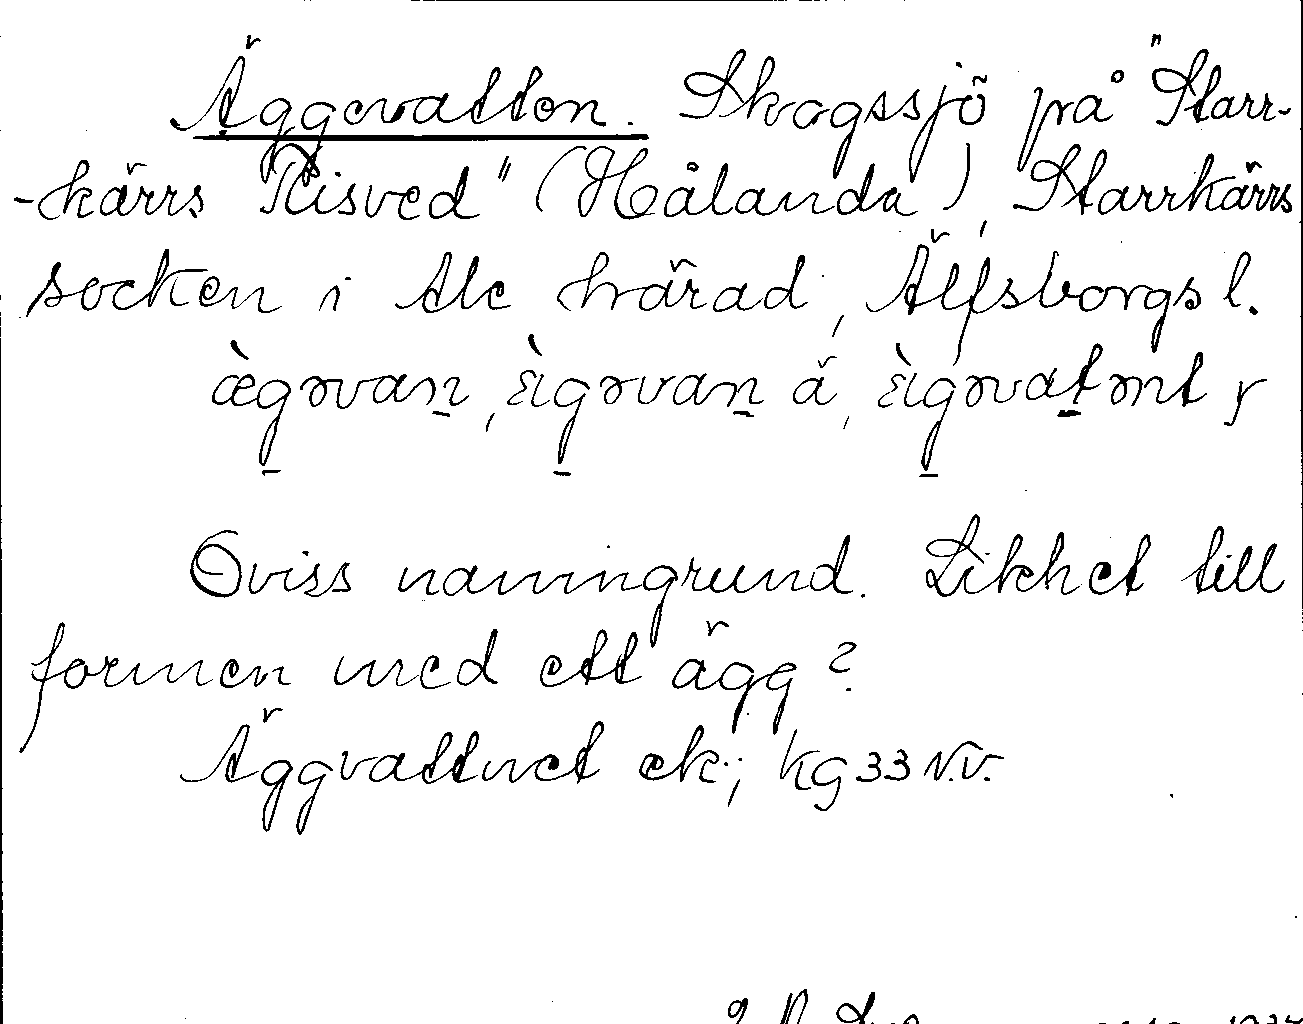 Äggevatten. Skogssjö på "Starr-
-kärrs Risved" (Hålanda), Starrkärrs
socken i Ale härad, Älfsborgs l.
æ̀gəvaṉ, ɛ̀igəvaṉ å, ɛ̀igəvaṯənt y
Oviss namngrund. Likhet till
formen med ett ägg?
Äggvattnet ek.; kg 33 N.V.